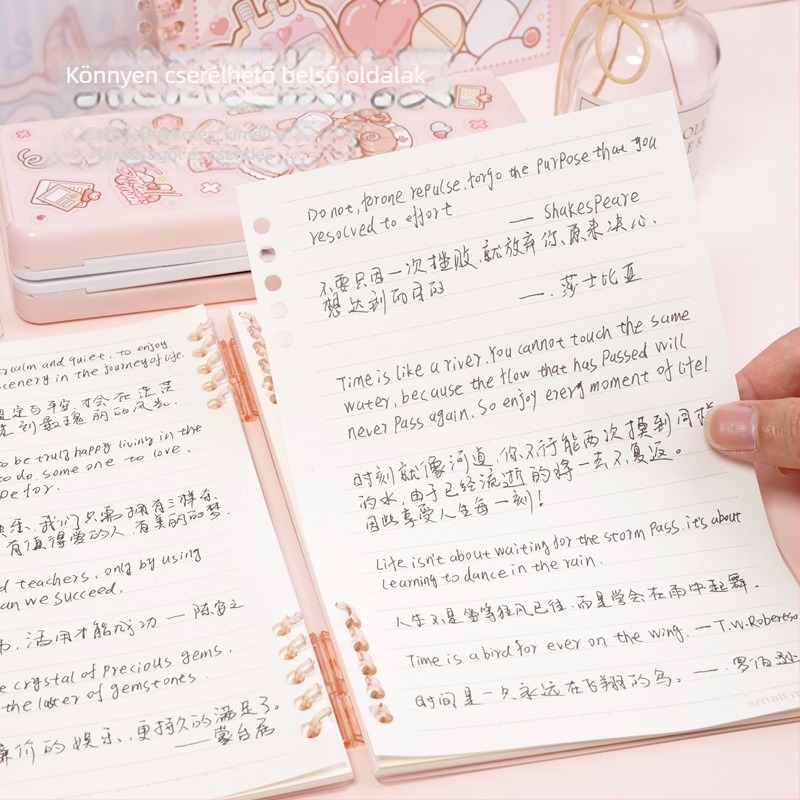 Könnyen cserélhető belső oldalak
Do not, for one repulse, forgo the purpose that you
resolved to effort
— Shakespeare
不要只因一次挫败,就放弃你原来决心
想达到的目的
—.莎士比亚
Time is like a river. You cannot touch the same
water, because the flow that has passed will
never pass again. So enjoy every moment of life!
时刻就像河道,你不行能两次摸到同样
的水,由于已经流逝的将一去不复返。
因此享受人生每一刻!
Life isn't about waiting for the storm pass. it's about
learning to dance in the rain.
人生不是坐等狂风已往.而是学会在雨中起舞.
Time is a bird for ever on the wing. — T.W.Robertso
时间是一久永远在飞翔的鸟。—.罗伯逊
small
calm and quiet, to enjoy
scenery in the journey of life.
定与平安,才会在
到最瑰丽的风光.
o be truly happy living in the
to do. some one to love,
pe for.
乐,我们只需拥有三样东
有值得爱的人.有美丽的梦.
d teachers, only by using
an we succeed.
活用才能成功 —
e crystal of precious gems,
the luster of gemstones.
价的娱乐.更持久的满足了。
——蒙台居